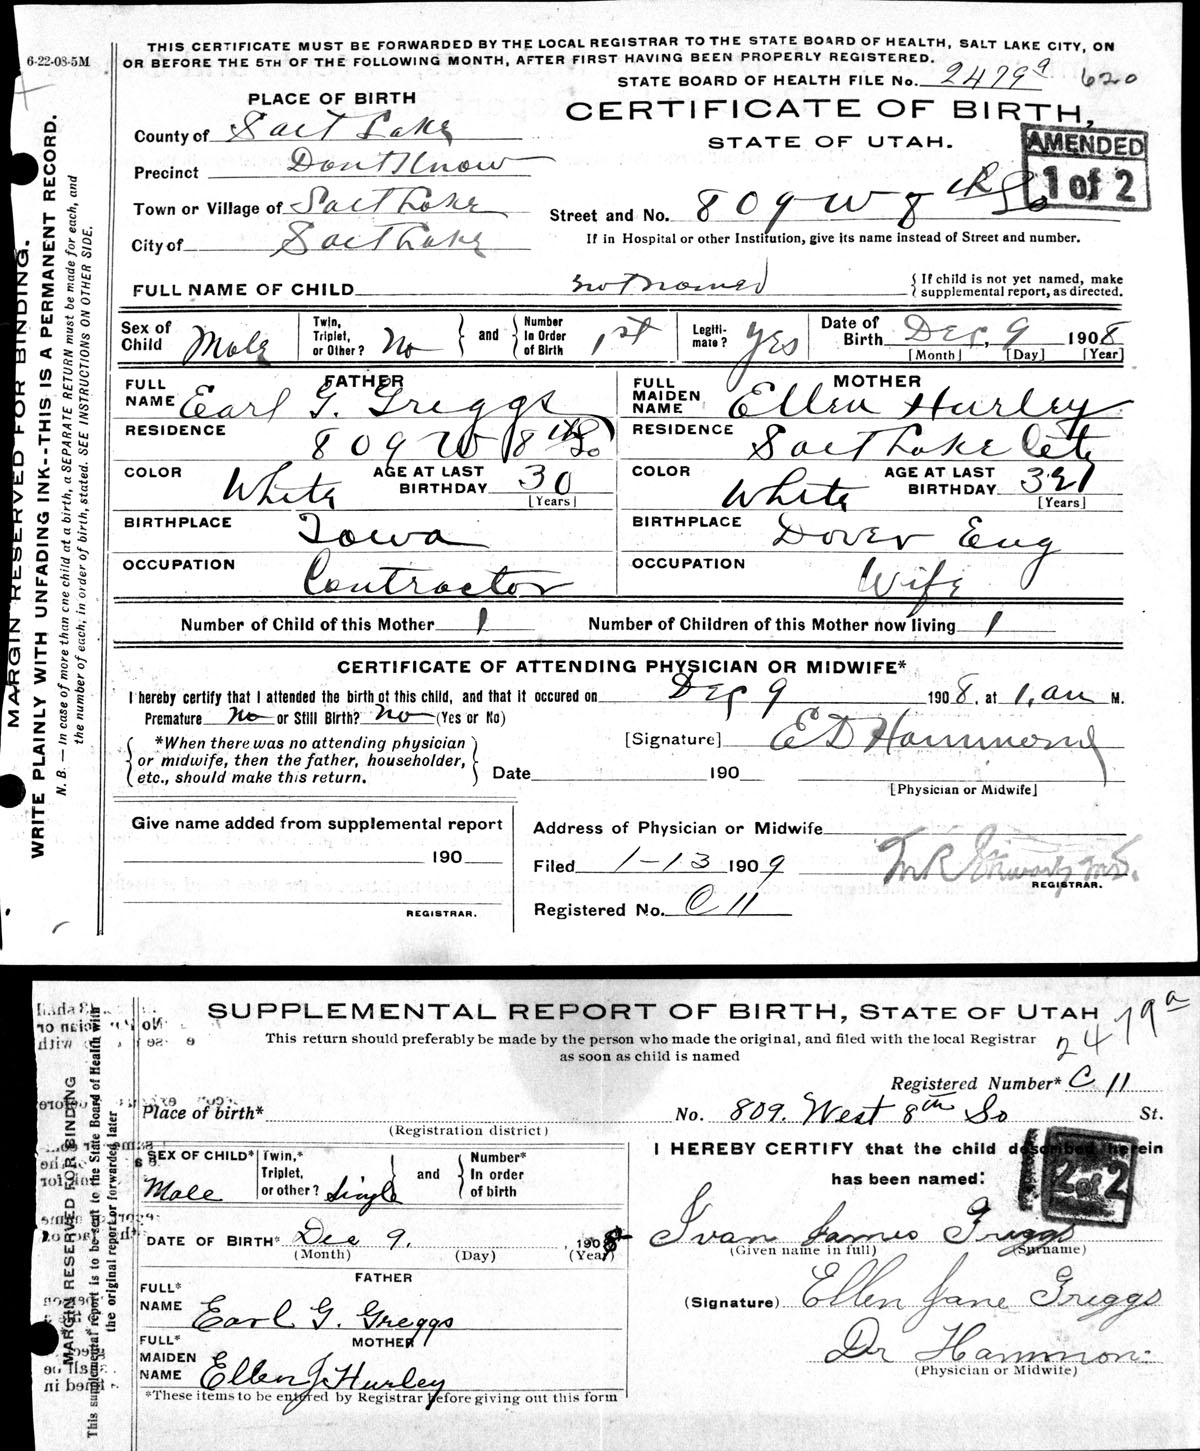 6-22-08-5M
THIS CERTIFICATE MUST BE FORWARDED BY THE LOCAL REGISTRAR TO THE STATE BOARD OF HEALTH, SALT LAKE CITY, ON
OR BEFORE THE 5TH OF THE FOLLOWING MONTH, AFTER FIRST HAVING BEEN PROPERLY REGISTERED.
STATE BOARD OF HEALTH FILE No. 2479a 620
PLACE OF BIRTH
CERTIFICATE OF BIRTH,
STATE OF UTAH.
AMENDED
1 of 2
County of Salt Lake
Precinct Dont Know
Town or Village of Salt Lake
City of Salt Lake
Street and No. 809 W 8th So
If in Hospital or other Institution, give its name instead of Street and number.
FULL NAME OF CHILD not named { If child is not yet named, make supplemental report, as directed.
Sex of Child Male Twin, Triplet, or Other? No } and { Number In Order of Birth 1st Legiti-mate? Yes Date of Birth Dec, 9 1908
[Month] [Day] [Year]
FATHER
FULL NAME Earl G. Griggs
RESIDENCE 809 W 8th So
COLOR White AGE AT LAST BIRTHDAY 30 [Years]
BIRTHPLACE Iowa
OCCUPATION Contractor
MOTHER
FULL MAIDEN NAME Ellen Hurley
RESIDENCE Salt Lake City
COLOR White AGE AT LAST BIRTHDAY 32 [Years]
BIRTHPLACE Dover Eng
OCCUPATION Wife
Number of Child of this Mother 1 Number of Children of this Mother now living 1
CERTIFICATE OF ATTENDING PHYSICIAN OR MIDWIFE*
I hereby certify that I attended the birth of this child, and that it occured on Dec 9 1908, at 1, am M.
Premature No or Still Birth? No (Yes or No)
*When there was no attending physician
or midwife, then the father, householder,
etc., should make this return.
[Signature] E D Hammond
Date 190
[Physician or Midwife]
Give name added from supplemental report
190
REGISTRAR.
Address of Physician or Midwife
Filed 1-13 1909
REGISTRAR.
Registered No. C 11
MARGIN RESERVED FOR BINDING.
WRITE PLAINLY WITH UNFADING INK--THIS IS A PERMANENT RECORD.
N. B. — In case of more than one child at a birth, a SEPARATE RETURN must be made for each, and
the number of each, in order of birth, stated. SEE INSTRUCTIONS ON OTHER SIDE.
SUPPLEMENTAL REPORT OF BIRTH, STATE OF UTAH
2479a
This return should preferably be made by the person who made the original, and filed with the local Registrar
as soon as child is named
Registered Number* C 11
Place of birth* No. 809. West 8th So St.
(Registration district)
SEX OF CHILD* Male Twin,* Triplet, or other? Single } and { Number* In order of birth
DATE OF BIRTH* Dec 9. 1908
(Month) (Day) (Year)
FATHER
FULL* NAME Earl G. Greggs
MOTHER
FULL* MAIDEN NAME Ellen J Hurley
*These items to be entered by Registrar before giving out this form
I HEREBY CERTIFY that the child described herein
has been named:
2 of 2
Ivan James Griggs
(Given name in full) (Surname)
(Signature) Ellen Jane Griggs
Dr Hammon
(Physician or Midwife)
MARGIN RESERVED FOR BINDING
This supplemental report is to be sent to the State Board of Health with
the original report or forwarded later